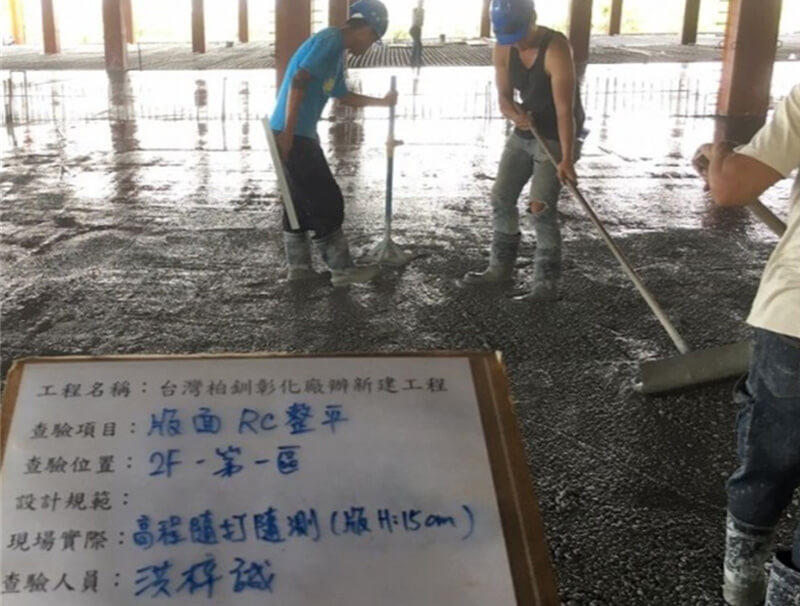 工程名稱：台灣柏釧彰化廠辦新建工程
查驗項目：版面 RC整平
查驗位置：2F - 第一區
設計規範：
現場實際：高程隨打隨測(版H:15cm)
查驗人員：洪梓誠